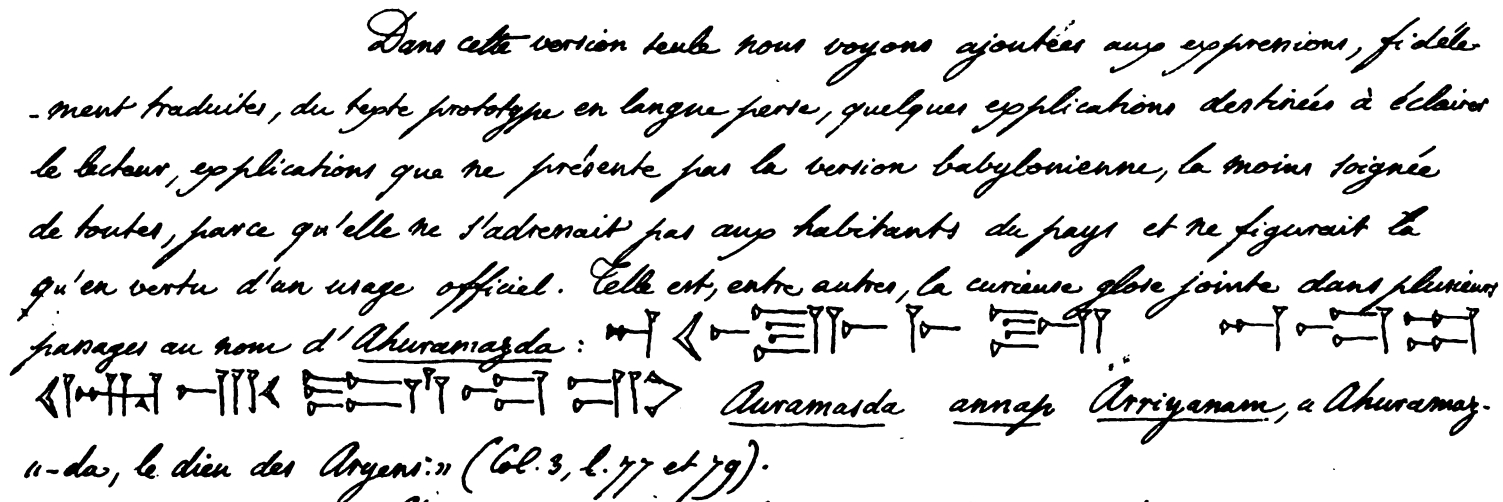 Dans cette version seule nous voyons ajoutées aux expressions, fidèle-
-ment traduites, du texte prototype en langue perse, quelques explications destinées à éclairer
le lecteur, explications que ne présente pas la version babylonienne, la moins soignée
de toutes, parce qu'elle ne s'adressait pas aux habitants du pays et ne figurait là
qu'en vertu d'un usage officiel. Telle est, entre autres, la curieuse glose jointe dans plusieurs
passages au nom d'Ahuramazda :
Auramasda annap Arriyanam, « Ahuramaz-
«-da, le dieu des Aryens:» (Col. 3, l. 77 et 79).